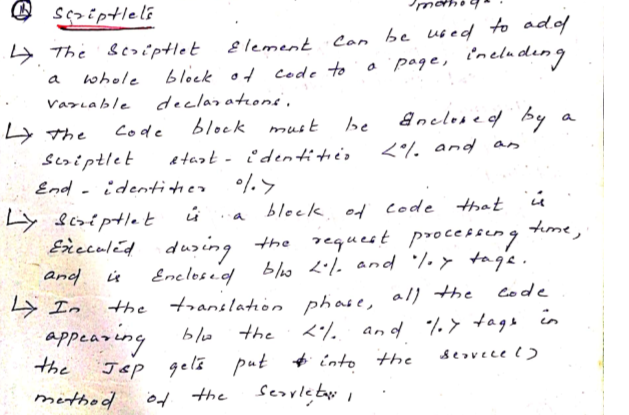 method.
④ Scriptlets
↳ The Scriptlet Element can be used to add
a whole block of code to a page, including
variable declarations.
↳ The code block must be Enclosed by a
Scriptlet start - identifier <% and an
End - identifier %>
↳ Scriptlet is a block of code that is
Executed during the request processing time,
and is Enclosed b/w <% and %> tags.
↳ In the translation phase, all the code
appearing b/w the <% and %> tags in
the JSP gets put into the service()
method of the Servlet